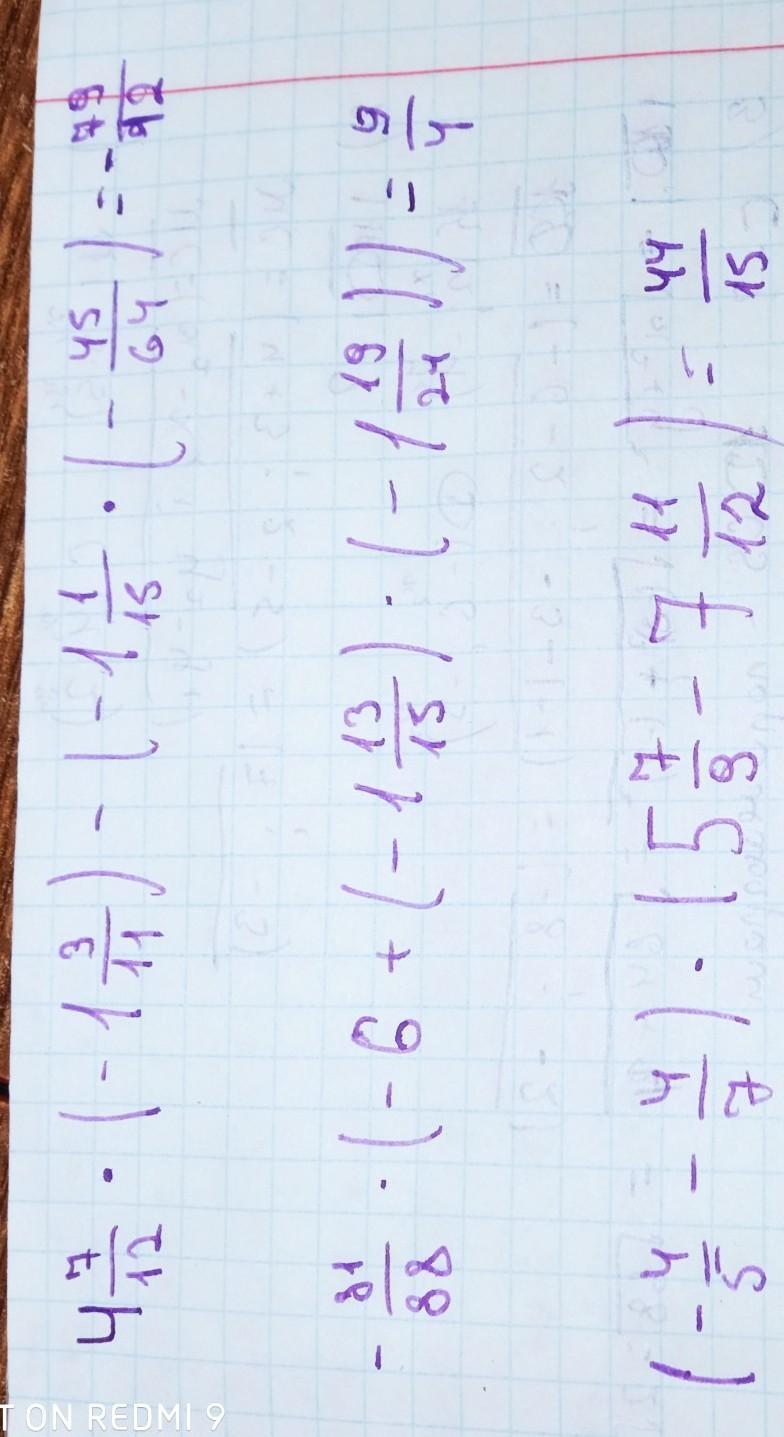 4 7/12 · (-1 3/11) - (-1 1/15 · (-45/64) = -79/12
-81/88 · (-6 + (-1 13/15) · (-1 19/21)) = 9/4
(-4/5 - 4/7) · (5 7/9 - 7 11/12) = 44/15
T ON REDMI 9